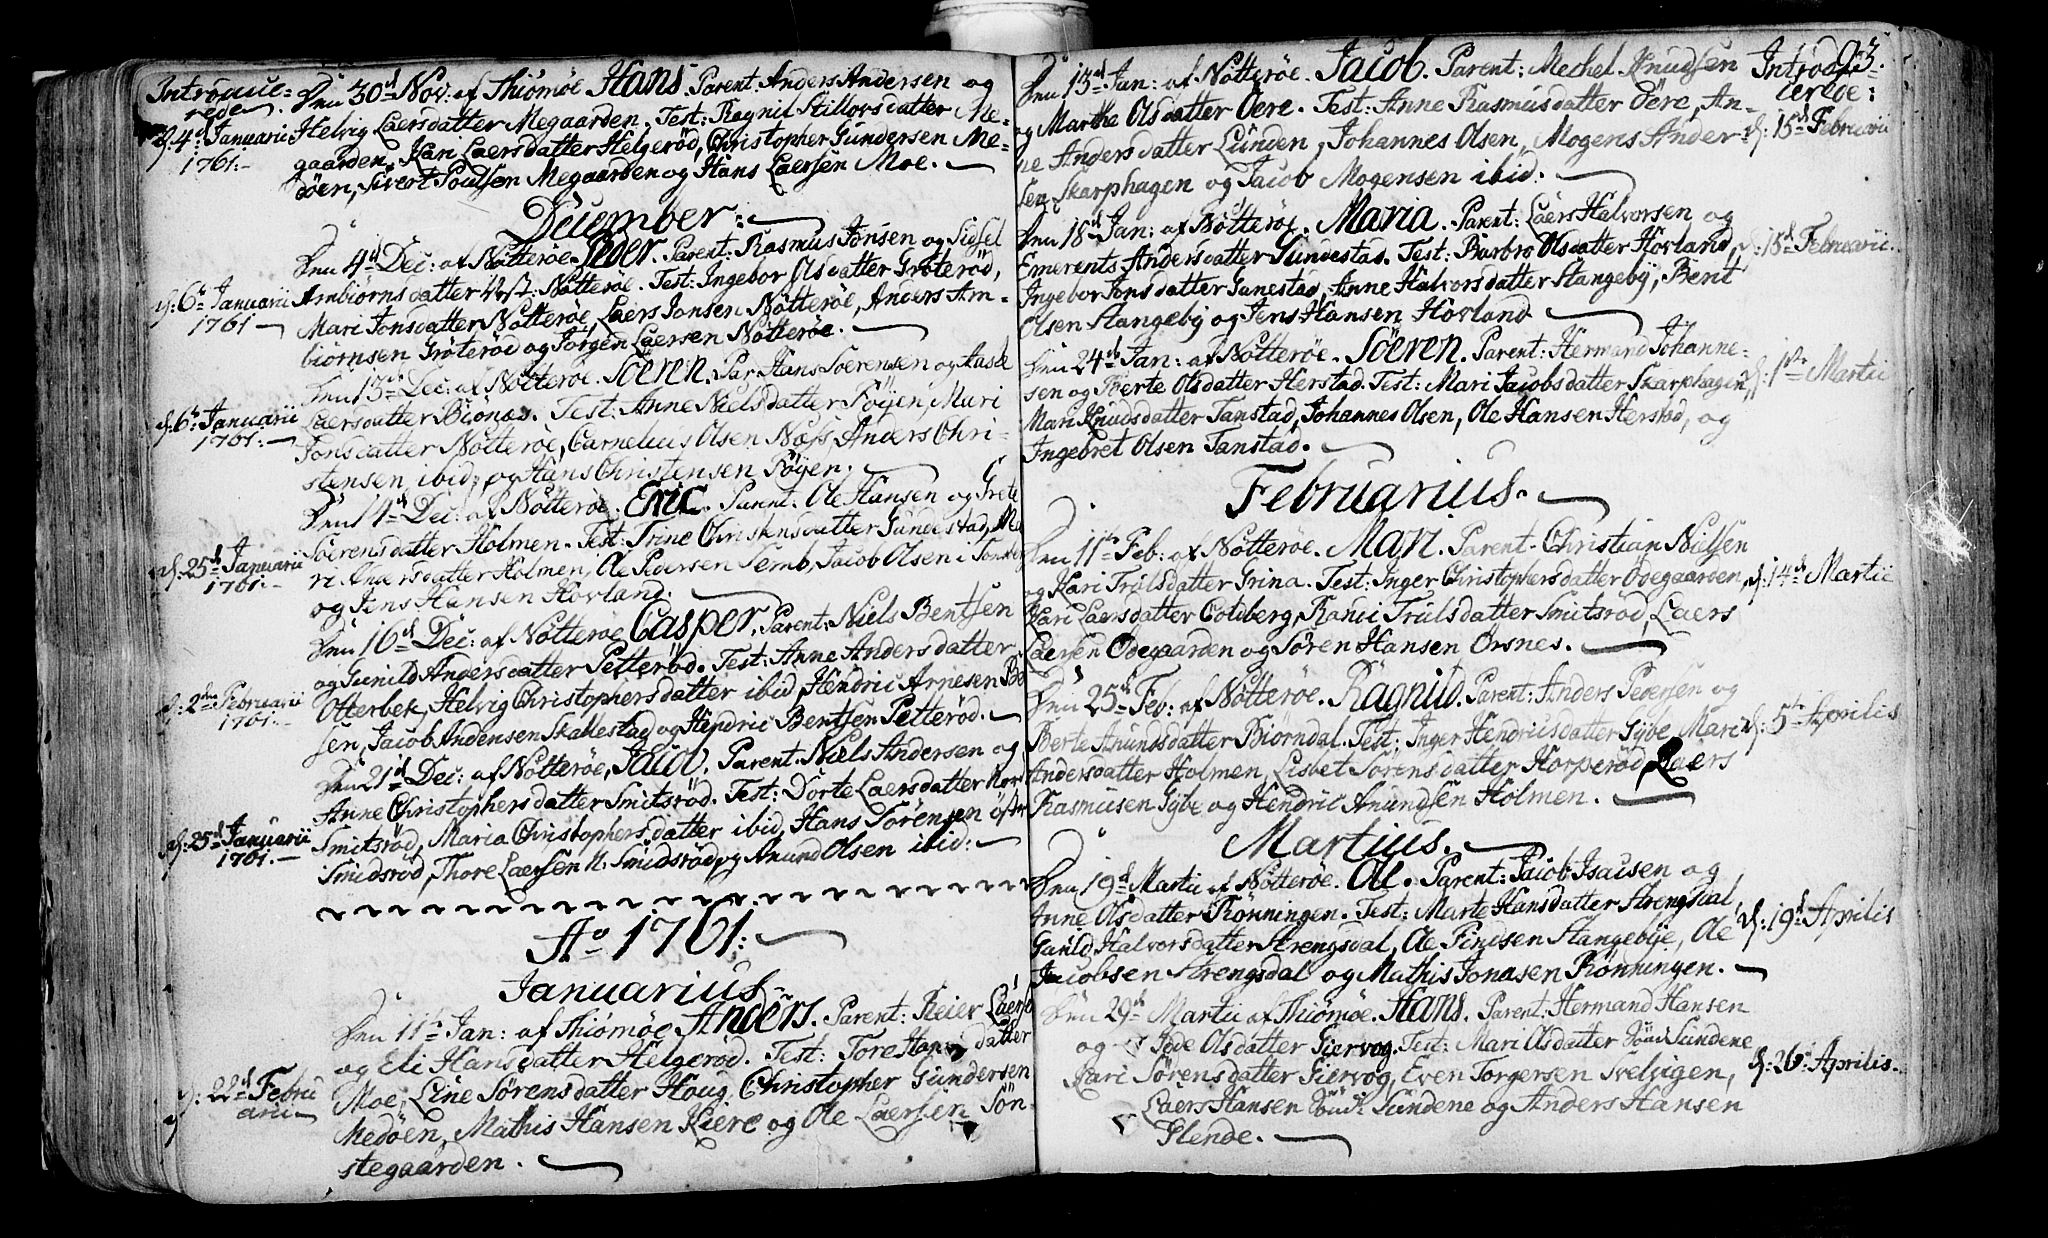 Introduce=
rede
Den 30d Nov: af Thiömöe Hans. Parent: Anders Andersen og
d: 4d Januarii Helvig Laersdatter Megaarden. Test: Ragnil Hillorsdatter Me=
1761.- gaarden, Kari Laersdatter Helgeröd, Christopher Gundersen Me=
döen, Sivert Poulsen Megaarden og Hans Laersen Moe.
December:
Den 4d Dec: af Nötteröe. Peder. Parent: Rasmus Jonsen og Sidsel
d: 6te Januarii Ambiörnsdatter Nötteröe. Test: Ingebor Olsdatter Gröteröd,
1761.- Mari Jonsdatter Nötteröe, Laers Jonsen Nötteröe, Anders Am=
biörnsen Gröteröd og Jörgen Laersen Nötteröe.
Den 13de Dec: af Nötteröe. Sören. Par: Hans Soerensen og Aase
d: 6te Januarii Laersdatter Biönnes. Test: Anne Nielsdatter Föyen, Mari
1761.- Jonsdatter Nötteröe, Cornelius Olsen Næss, Anders Chri=
stensen ibid: og Hans Christensen Föyen.
Den 14d Dec: af Nötteröe. Eric. Parent: Ole Hansen og Grete
d: 25d Januarii Soerensdatter Holmen. Test: Trine Christensdatter Gundestad, Ma
1761.- ri Andersdatter Holmen, Ole Pedersen Semb, Jacob Olsen
og Jens Hansen Hovland.
Den 16d Dec: af Nötteröe. Casper. Parent: Niels Bentsen
og Gunild Andersdatter Petteröd. Test: Anne Andersdatter
d: 2den Februarii Otterbek, Helvig Christophersdatter ibid, Hendric Arnesen
1761.- sen, Jacob Andensen Skallestad og Hendric Bentsen Petteröd.
Den 21d Dec: af Nötteröe, Jacob. Parent. Niels Andersen og
Anne Christophersdatter Smitsröd. Test: Dorte Laersdatter Nor
d: 25d Januarii Smitsröd, Maria Christophersdatter ibid, Hans Sörensen öster
1761.- Smidsröd, Thore Laersen N: Smidsröd og Anund Olsen ibid:
Ao 1761:
Januarius.
Den 11te Jan: af Thiömöe Anders. Parent: Reier Laers
og Eli Hansdatter Helgeröd. Test: Tore Hansdatter
d: 22d Febru Moe, Line Sörensdatter Houg, Christopher Gundersen
arii Medöen, Mathis Hansen Kiere og Ole Laersen Sön
stegaarden.
93.
Introdu=
cerede:
Den 13d Jan: af Nötteröe. Jacob. Parent: Mechel Knudsen
og Marthe Olsdatter Oere. Test: Anne Rasmusdatter Oere, An=
ne Andersdatter Lunden, Johannes Olsen, Mogens Ander= d: 15d Februarii
sen Skarphagen og Jacob Mogensen ibid:
Den 18d Jan: af Nötteröe. Maria. Parent: Laers Halvorsen og
Emerents Andersdatter Gundestad. Test: Barbro Olsdatter Hovland, d: 15d Februarii.
Ingebor Jonsdatter Gunestad, Anne Halvorsdatter Stangeby, Brent
Olsen Stangeby og Jens Hansen Hovland.
Den 24de Jan: af Nötteröe. Söeren. Parent: Hermand Johanne=
sen og Berte Olsdatter Herstad. Test: Mari Jacobsdatter Skarphagen d: 1ste Martii
Mari Knudsdatter Tanstad, Johannes Olsen, Ole Hansen Herstad, og
Ingebret Olsen Tanstad.
Februarius.
Den 11te Feb: af Nötteröe. Mari. Parent. Christian Nielsen
og Kari Trölsdatter Grina. Test: Inger Christophersdatter Odegaarden, d: 14d Martii
Kari Laersdatter Coldberg, Rannei Trulsdatter Smitsröd, Laers
Laersen Odegaarden og Sören Hansen Orsnes.
Den 25d Feb: af Nötteröe. Ragnild. Parent: Anders Pedersen og
Berte Anundsdatter Biörndal. Test: Inger Hendricsdatter Gybe, Mari d: 5te Aprilis
Andersdatter Holmen, Lisbet Sörensdatter Horperöd, Laers
Rasmusen Gybe og Hendric Anundsen Holmen.
Martius.
Den 19d Martii af Nötteröe. Ole. Parent: Jacob Isacsen og
Anne Olsdatter Rönningen. Test: Marte Hansdatter Strengsdal,
Gunild Halvorsdatter Strengsdal, Ole Findsen Stangebye, Ole d: 19d Aprilis
Jacobsen Strengsdal og Mathis Jonasen Rönningen.
Den 29de Martii af Thiömöe. Hans. Parent. Hermand Hansen
og Idde Olsdatter Giervog. Test: Mari Olsdatter Sundene
Kari Sörensdatter Giervog, Even Torgersen Svelvigen, d: 26te Aprilis.
Laers Hansen Sundene og Anders Hansen
Glende.